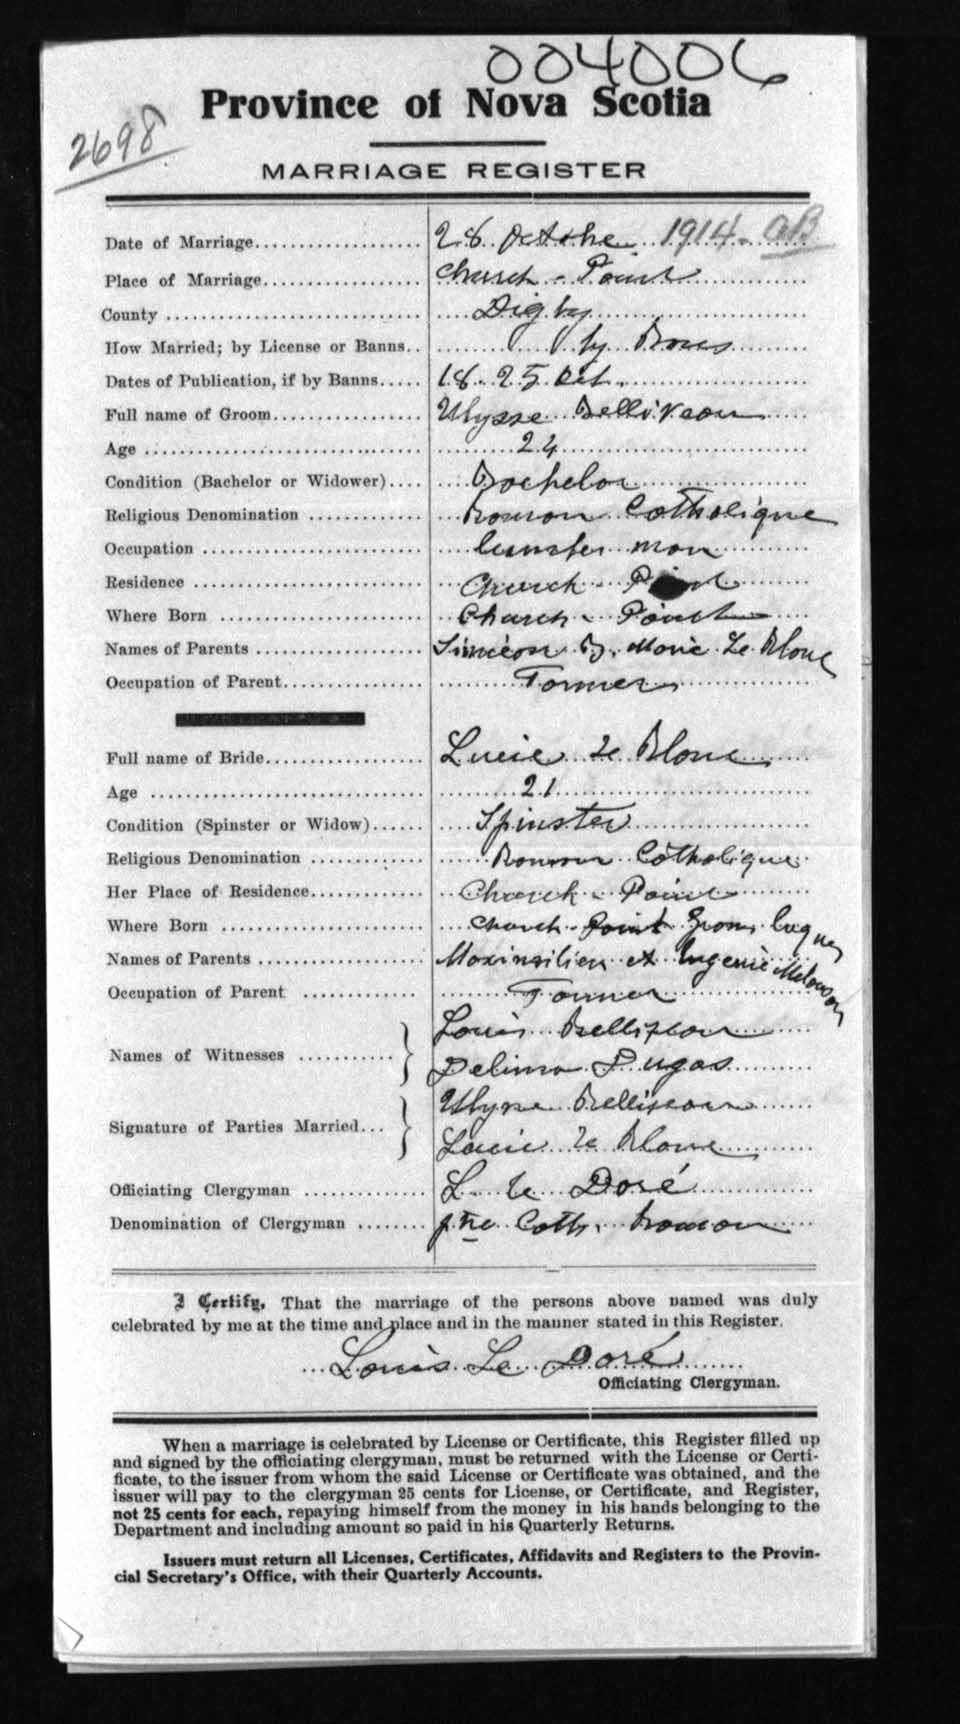 004006
2698
Province of Nova Scotia
MARRIAGE REGISTER
Date of Marriage 28 Octobre 1914
Place of Marriage Church-Point
County Digby
How Married; by License or Banns by Bans
Dates of Publication, if by Banns 18. 25 Oct.
Full name of Groom Ulysse Belliveau
Age 24
Condition (Bachelor or Widower) Bachelor
Religious Denomination Roman Catholique
Occupation lumber man
Residence Church-Point
Where Born Church-Point
Names of Parents Siméon B. Marie Le Blanc
Occupation of Parent Farmer
Full name of Bride Lucie Le Blanc
Age 21
Condition (Spinster or Widow) Spinster
Religious Denomination Roman Catholique
Her Place of Residence Church-Point
Where Born Church-Point
Names of Parents Maximilien et Eugenie Melanson
Occupation of Parent Farmer
Names of Witnesses Louis Belliveau
Delima Dugas
Signature of Parties Married Ulysse Belliveau
Lucie Le Blanc
Officiating Clergyman L. Le Doré
Denomination of Clergyman ptre Cath. Roman
I Certify, That the marriage of the persons above named was duly
celebrated by me at the time and place and in the manner stated in this Register.
Louis Le Doré
Officiating Clergyman.
When a marriage is celebrated by License or Certificate, this Register filled up
and signed by the officiating clergyman, must be returned with the License or Certi-
ficate, to the issuer from whom the said License or Certificate was obtained, and the
issuer will pay to the clergyman 25 cents for License, or Certificate, and Register,
not 25 cents for each, repaying himself from the money in his hands belonging to the
Department and including amount so paid in his Quarterly Returns.
Issuers must return all Licenses, Certificates, Affidavits and Registers to the Provin-
cial Secretary's Office, with their Quarterly Accounts.